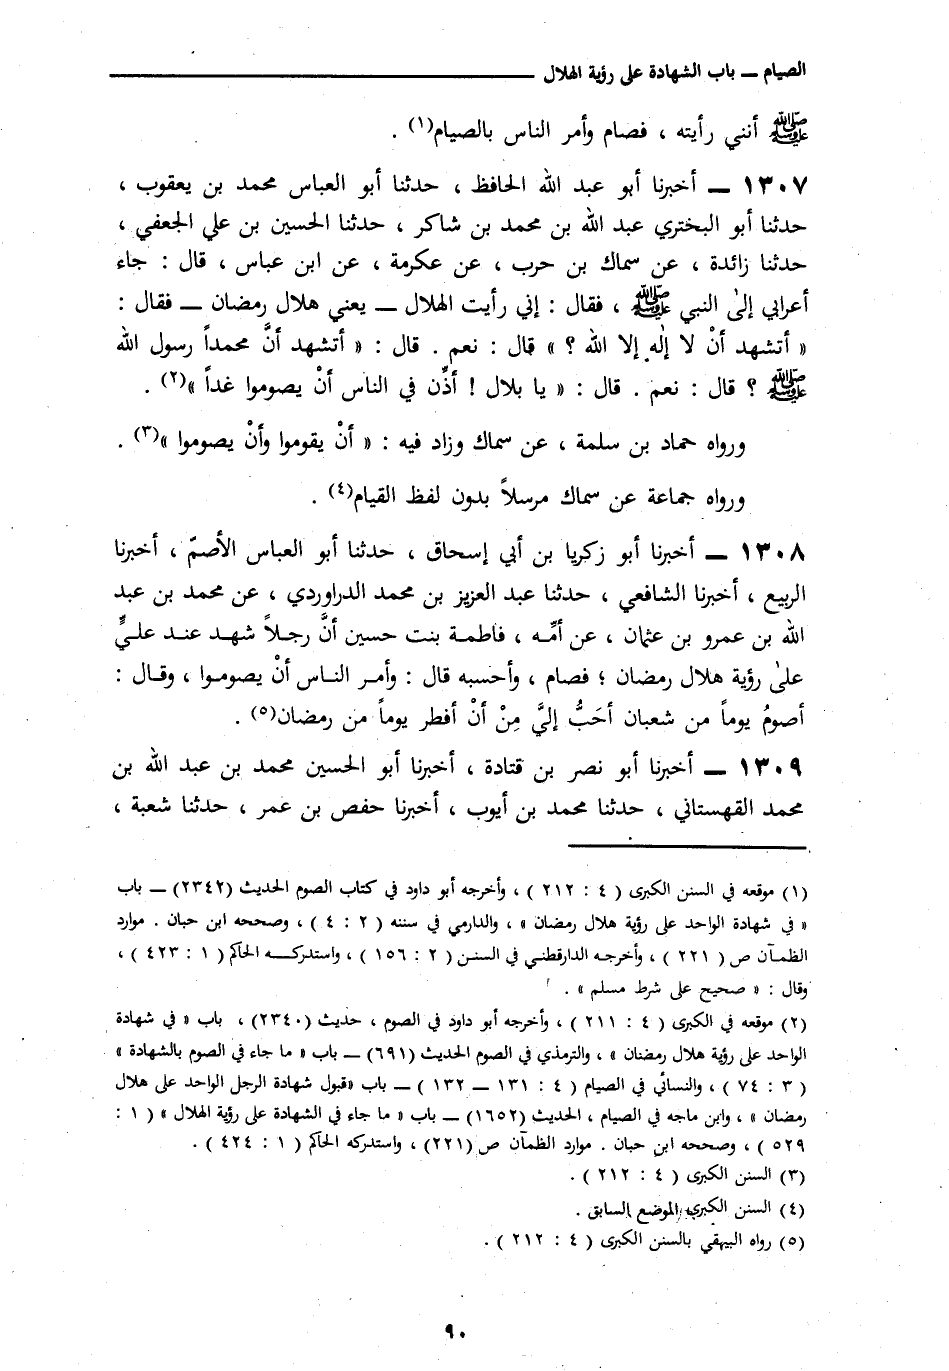 الصيام ــ باب الشهادة على رؤية الهلال
ﷺ أنني رأيته ، فصام وأمر الناس بالصيام(١) .
١٣٠٧ ــ أخبرنا أبو عبد الله الحافظ ، حدثنا أبو العباس محمد بن يعقوب ،
حدثنا أبو البختري عبد الله بن محمد بن شاكر ، حدثنا الحسين بن علي الجعفي ،
حدثنا زائدة ، عن سماك بن حرب ، عن عكرمة ، عن ابن عباس ، قال : جاء
أعرابي إلىٰ النبي ﷺ ، فقال : إني رأيت الهلال ــ يعني هلال رمضان ــ فقال :
« أتشهد أنْ لا إلٰه إلا الله ؟ » قال : نعم . قال : « أتشهد أنَّ محمداً رسول الله
ﷺ ؟ قال : نعم . قال : « يا بلال ! أذِّن في الناس أنْ يصوموا غداً »(٢) .
ورواه حماد بن سلمة ، عن سماك وزاد فيه : « أنْ يقوموا وأنْ يصوموا »(٣) .
ورواه جماعة عن سماك مرسلاً بدون لفظ القيام(٤) .
١٣٠٨ ــ أخبرنا أبو زكريا بن أبي إسحاق ، حدثنا أبو العباس الأصمّ ، أخبرنا
الربيع ، أخبرنا الشافعي ، حدثنا عبد العزيز بن محمد الدراوردي ، عن محمد بن عبد
الله بن عمرو بن عثمان ، عن أمّه ، فاطمة بنت حسين أنَّ رجلاً شهد عند عليٍّ
علىٰ رؤية هلال رمضان ؛ فصام ، وأحسبه قال : وأمر الناس أنْ يصوموا ، وقال :
أصومُ يوماً من شعبان أحَبُّ إليَّ مِنْ أنْ أفطر يوماً من رمضان(٥) .
١٣٠٩ ــ أخبرنا أبو نصر بن قتادة ، أخبرنا أبو الحسين محمد بن عبد الله بن
محمد القهستاني ، حدثنا محمد بن أيوب ، أخبرنا حفص بن عمر ، حدثنا شعبة ،
(١) موقعه في السنن الكبرى ( ٤ : ٢١٢ ) ، وأخرجه أبو داود في كتاب الصوم الحديث (٢٣٤٢) ــ باب
« في شهادة الواحد على رؤية هلال رمضان » ، والدارمي في سننه ( ٢ : ٤ ) ، وصححه ابن حبان . موارد
الظمآن ص ( ٢٢١ ) ، وأخرجه الدارقطني في السنن ( ٢ : ١٥٦ ) ، واستدركه الحاكم ( ١ : ٤٢٣ ) ،
وقال : « صحيح على شرط مسلم » .
(٢) موقعه في الكبرى ( ٤ : ٢١١ ) ، وأخرجه أبو داود في الصوم ، حديث (٢٣٤٠) ، باب « في شهادة
الواحد على رؤية هلال رمضان » ، والترمذي في الصوم الحديث (٦٩١) ــ باب « ما جاء في الصوم بالشهادة »
( ٣ : ٧٤ ) ، والنسائي في الصيام ( ٤ : ١٣١ ــ ١٣٢ ) ــ باب «قبول شهادة الرجل الواحد على هلال
رمضان » ، وابن ماجه في الصيام ، الحديث (١٦٥٢) ــ باب « ما جاء في الشهادة على رؤية الهلال » ( ١ :
٥٢٩ ) ، وصححه ابن حبان . موارد الظمآن ص (٢٢١) ، واستدركه الحاكم ( ١ : ٤٢٤ ) .
(٣) السنن الكبرى ( ٤ : ٢١٢ ) .
(٤) السنن الكبرى الموضع السابق .
(٥) رواه البيهقي بالسنن الكبرى ( ٤ : ٢١٢ ) .
٩٠